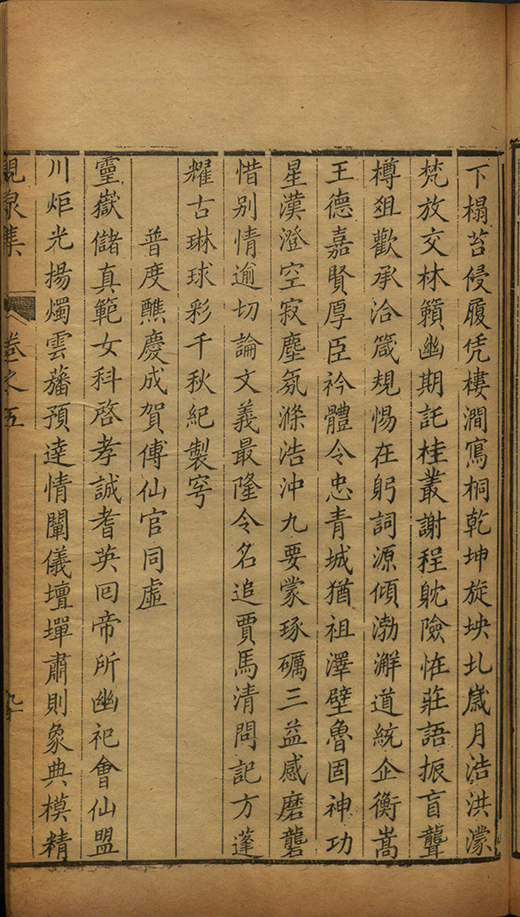 下榻苔侵履凭樓澗寫桐乾坤旋坱圠歲月浩洪濛
梵放交林籟幽期託桂叢謝程躭險怪莊語振盲聾
樽俎歡承洽箴規惕在躬詞源傾渤澥道統企衡嵩
王德嘉賢厚臣衿體令忠青城猶祖澤壁魯固神功
星漢澄空寂塵氛滌浩沖九要蒙琢礪三益感磨礱
惜别情逾切論文義最隆令名追賈馬清問記方蓬
耀古琳球彩千秋紀製穹
普度醮慶成賀傅仙官同虛
靈嶽儲真範女科啓孝誠耆英囘帝所幽祀會仙盟
川炬光揚燭雲旛預達情闡儀壇墠肅則象典模精
峴泉集
卷之五